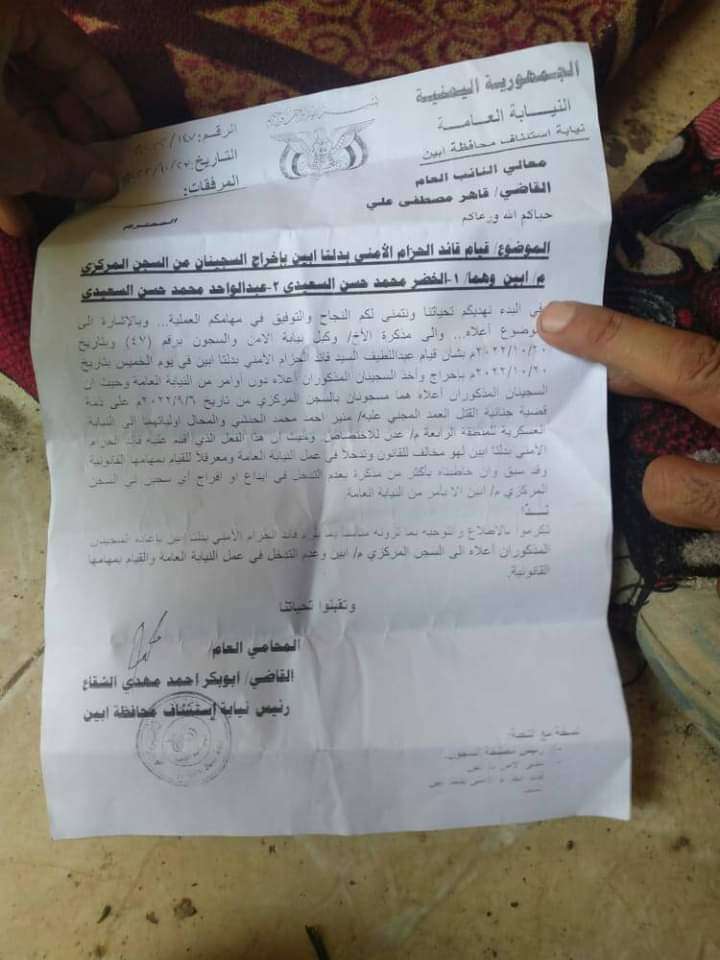 الجمهورية اليمنية
النيابة العامة
نيابة استئناف محافظة ابين
الرقم:
التاريخ:
المرفقات:
معالي النائب العام
القاضي/ قاهر مصطفى علي
المحترم
حياكم الله ورعاكم
الموضوع/ قيام قائد الحزام الأمني بدلتا ابين بإخراج السجينان من السجن المركزي
م/ ابين وهما/ ١-الخضر محمد حسن السعيدي ٢-عبدالواحد محمد حسن السعيدي
في البدء نهديكم تحياتنا ونتمنى لكم النجاح والتوفيق في مهامكم العملية... وبالإشارة الى
الموضوع أعلاه... والى مذكرة الأخ/ وكيل نيابة الامن والسجون برقم (٤٧) وبتاريخ
٢٠٢٢/١٠/٢٠م بشأن قيام عبداللطيف السيد قائد الحزام الأمني بدلتا ابين في يوم الخميس بتاريخ
٢٠٢٢/١٠/٢٠م بإخراج وأخذ السجينان المذكوران أعلاه دون أوامر من النيابة العامة وحيث ان
السجينان المذكوران أعلاه هما مسجونان بالسجن المركزي من تاريخ ٢٠٢٢/٩/٦م على ذمة
قضية جنائية القتل العمد المجني عليه/ منير احمد محمد والمحال اولياتهما الى النيابة
العسكرية للمنطقة الرابعة م/ عدن للاختصاص وحيث ان هذا الفعل الذي أقدم عليه قائد الحزام
الأمني بدلتا ابين لهو مخالف للقانون وتدخلاً في عمل النيابة العامة ومعرقلاً للقيام بمهامها القانونية
وقد سبق وان خاطبناه بأكثر من مذكرة بعدم التدخل في ايداع او افراج أي سجين في السجن
المركزي م/ ابين الا بأمر من النيابة العامة.
لــذا
تكرموا بالاطلاع والتوجيه بما ترونه مناسباً قائد الحزام الأمني بدلتا ابين بإعادة السجينان
المذكوران أعلاه الى السجن المركزي م/ ابين وعدم التدخل في عمل النيابة العامة والقيام بمهامها
القانونية.
وتقبلوا تحياتنا
المحامي العام/
القاضي/ ابوبكر احمد مهدي الشقاع
رئيس نيابة إستئناف محافظة ابين
نسخة مع التحية:
رئيس مصلحة السجون